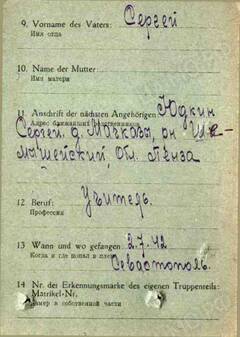 9. Vorname des Vaters: Сергей
Имя отца
10. Name der Mutter:
Имя матери
11 Anschrift der nächsten Angehörigen: Юдкин
Адрес ближайших родственников
Сергей. д. Мачкозы, он Ше-
мышейский, Обл. Пенза
Учитель.
12 Beruf:
Профессия
13 Wann und wo gefangen: 2.7.42
Когда и где попал в плен
Севастополь.
14 Nr. der Erkennungsmarke des eigenen Truppenteils:
Matrikel-Nr.
Номер в собственной части